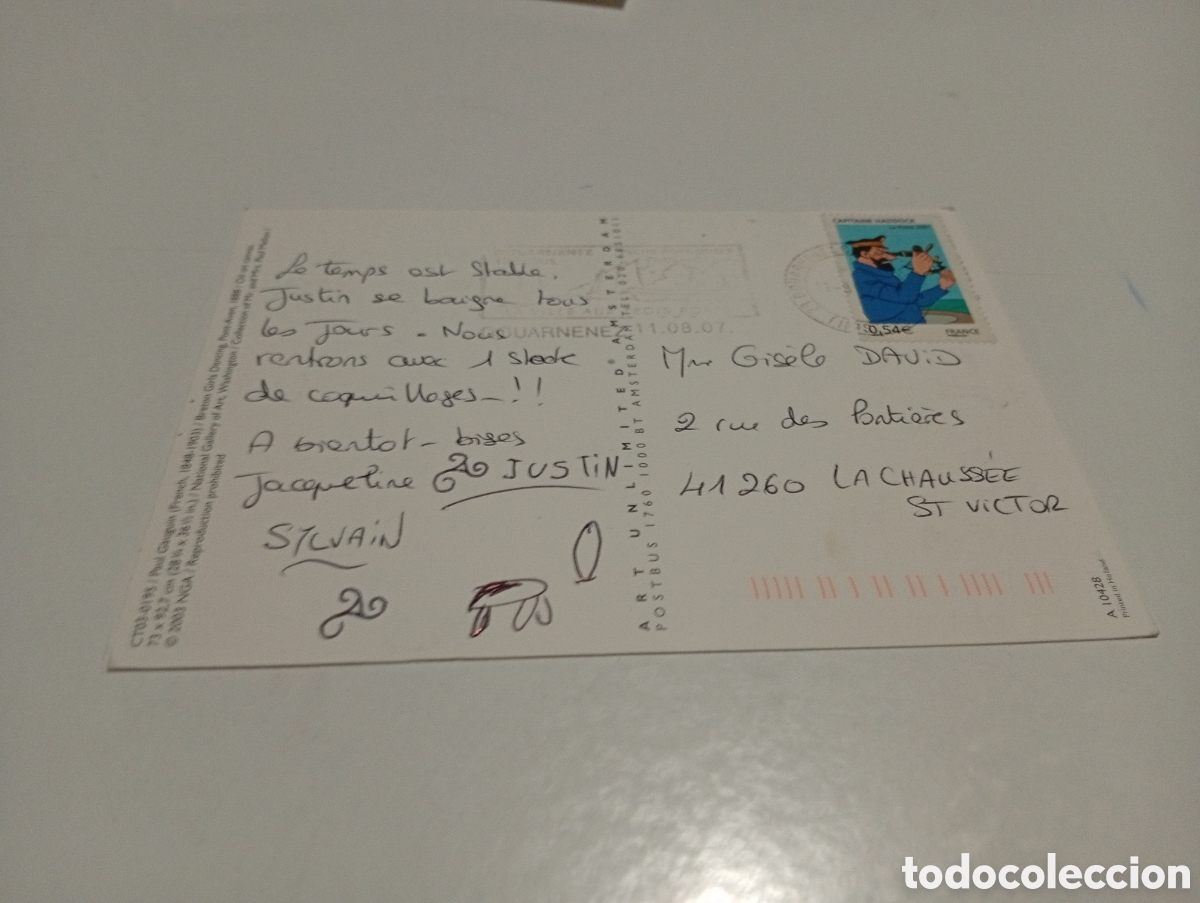 CT03-0195 / Paul Gauguin (French, 1848-1903) / Breton Girls Dancing, Pont-Aven, 1888 / Oil on canvas
73 x 92,7 cm (28 ¾ x 36 ½ in.) / National Gallery of Art, Washington / Collection of Mr. and Mrs. Paul Mellon /
© 2003 NGA / Reproduction prohibited
Le temps est Stable.
Justin se baigne tous
les Jours - Nous
rentrons avec 1 Stock
de coquillages - !!
A bientot - bises
Jacqueline JUSTIN
SYLVAIN
DOUARNENEZ 11.08.07.
ART UNLIMITED® AMSTERDAM
POSTBUS 1760 1000 BT AMSTERDAM TEL. 020
CAPITAINE HADDOCK
La Poste 2007
0,54€
FRANCE
Mme Gisèle DAVID
2 rue des Portières
41260 LA CHAUSSÉE
ST VICTOR
A 10428
Printed in Holland
todocoleccion